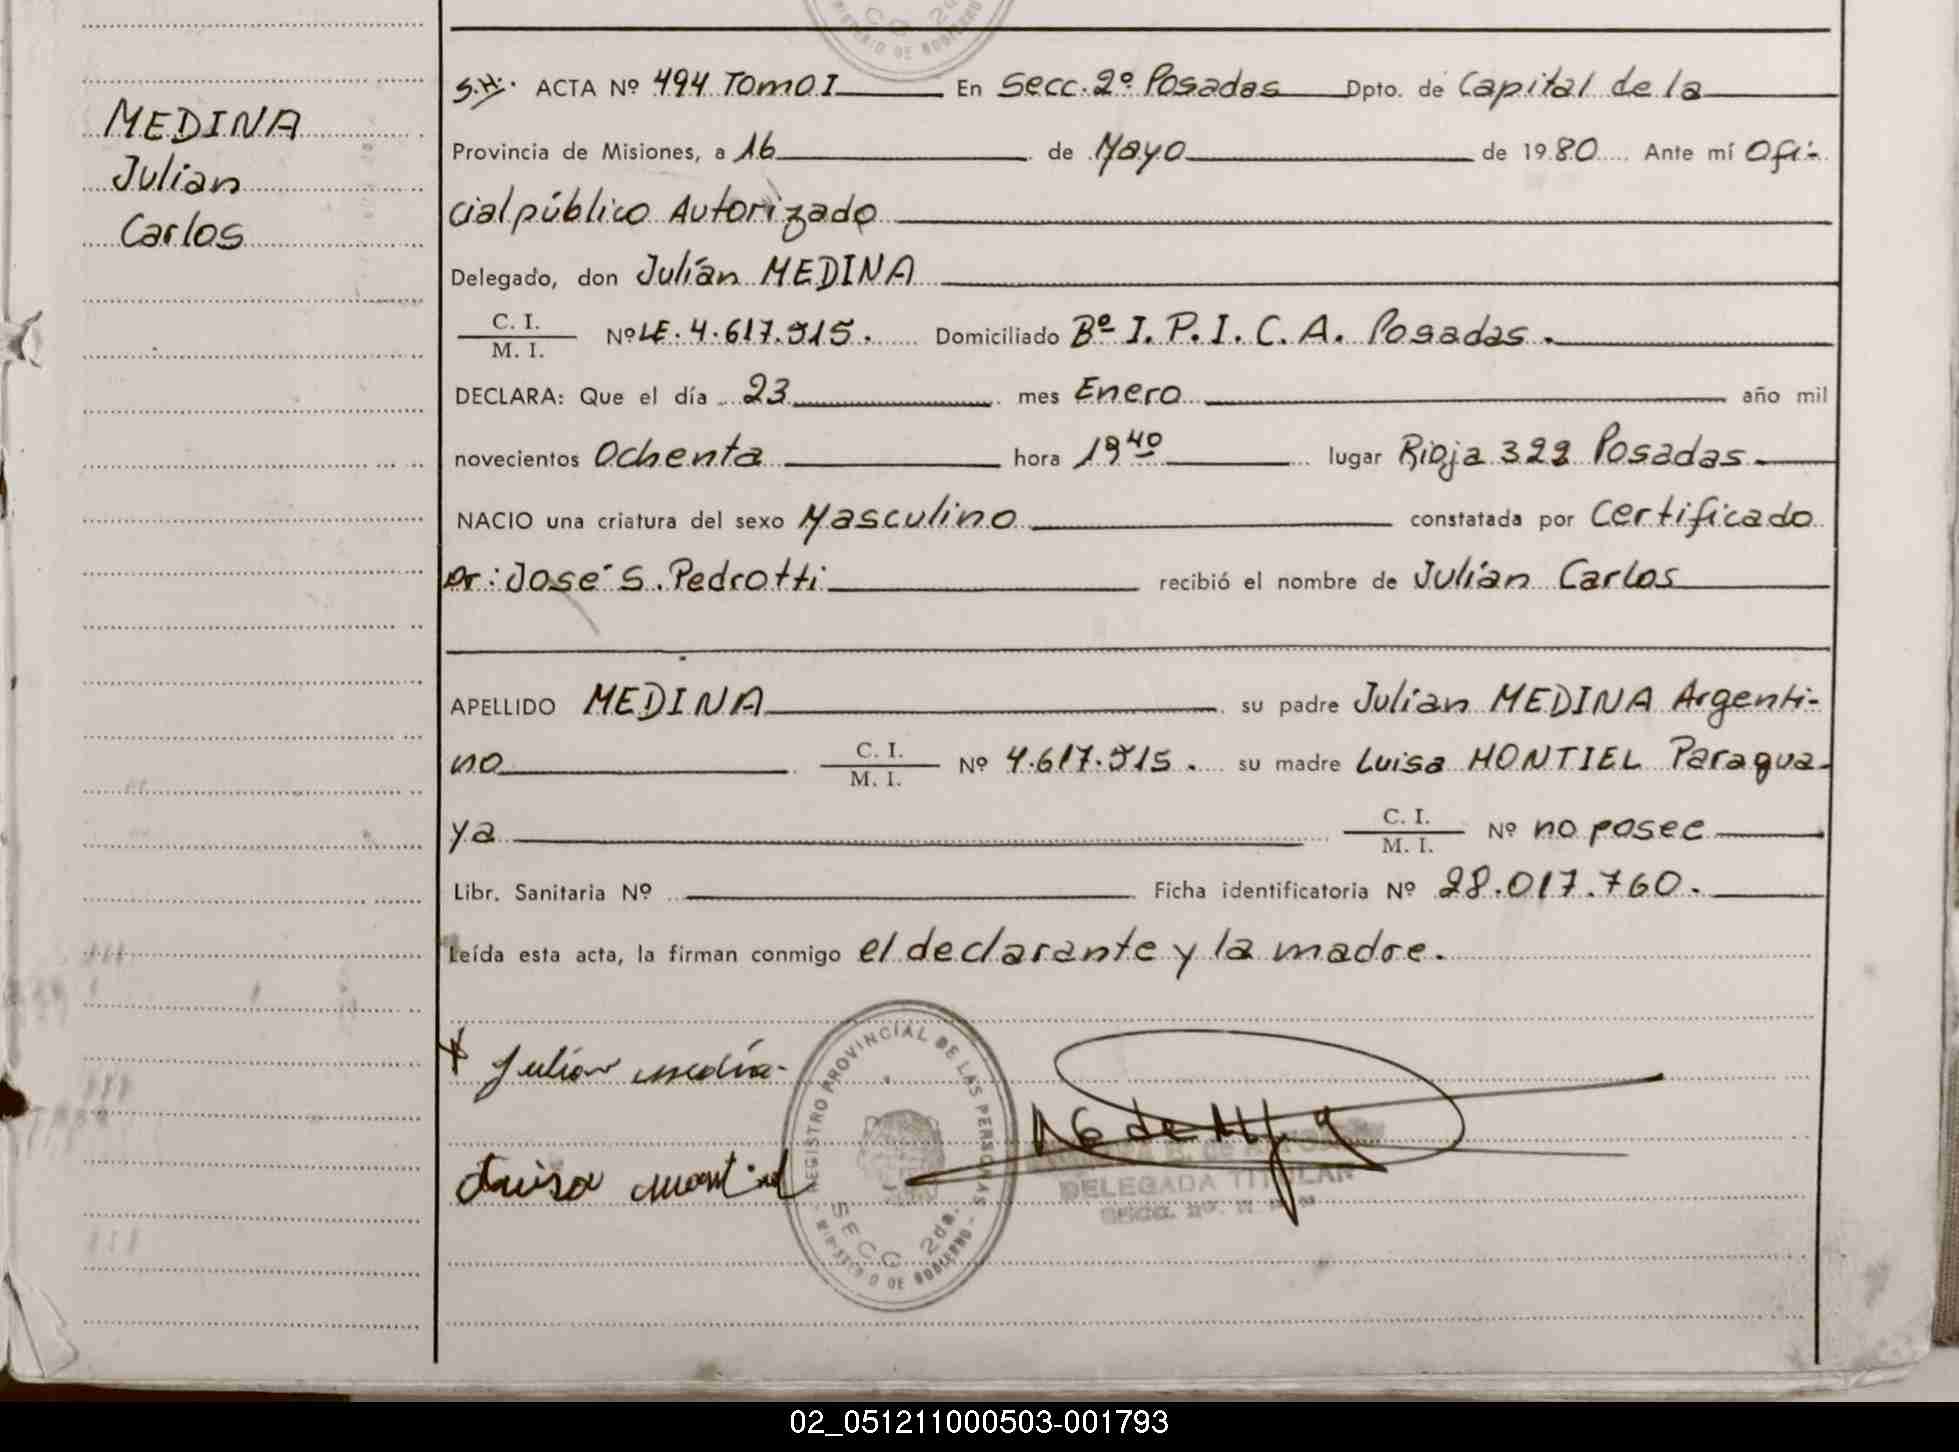 MEDINA
Julian
Carlos
S.H. ACTA Nº 494 Tomo I En Secc. 2º Posadas Dpto. de Capital de la
Provincia de Misiones, a 16 de Mayo de 1980 Ante mí Ofi-
cial público Autorizado
Delegado, don Julián MEDINA
C. I.
M. I. Nº LE. 4.617.915. Domiciliado Bº I. P. I. C. A. Posadas.
DECLARA: Que el día 23 mes Enero año mil
novecientos Ochenta hora 19 40 lugar Rioja 322 Posadas
NACIO una criatura del sexo Masculino constatada por Certificado
Dr: José S. Pedrotti recibió el nombre de Julián Carlos
APELLIDO MEDINA su padre Julian MEDINA Argenti-
no C. I.
M. I. Nº 4.617.915. su madre Luisa MONTIEL Paragua-
ya C. I.
M. I. Nº no posee
Libr. Sanitaria Nº Ficha identificatoria Nº 28.017.760.
Leída esta acta, la firman conmigo el declarante y la madre.
Julián medina
Luisa montiel
REGISTRO PROVINCIAL DE LAS PERSONAS
SECC 2da.
MINISTERIO DE GOBIERNO
DELEGADA TITULAR
02_051211000503-001793